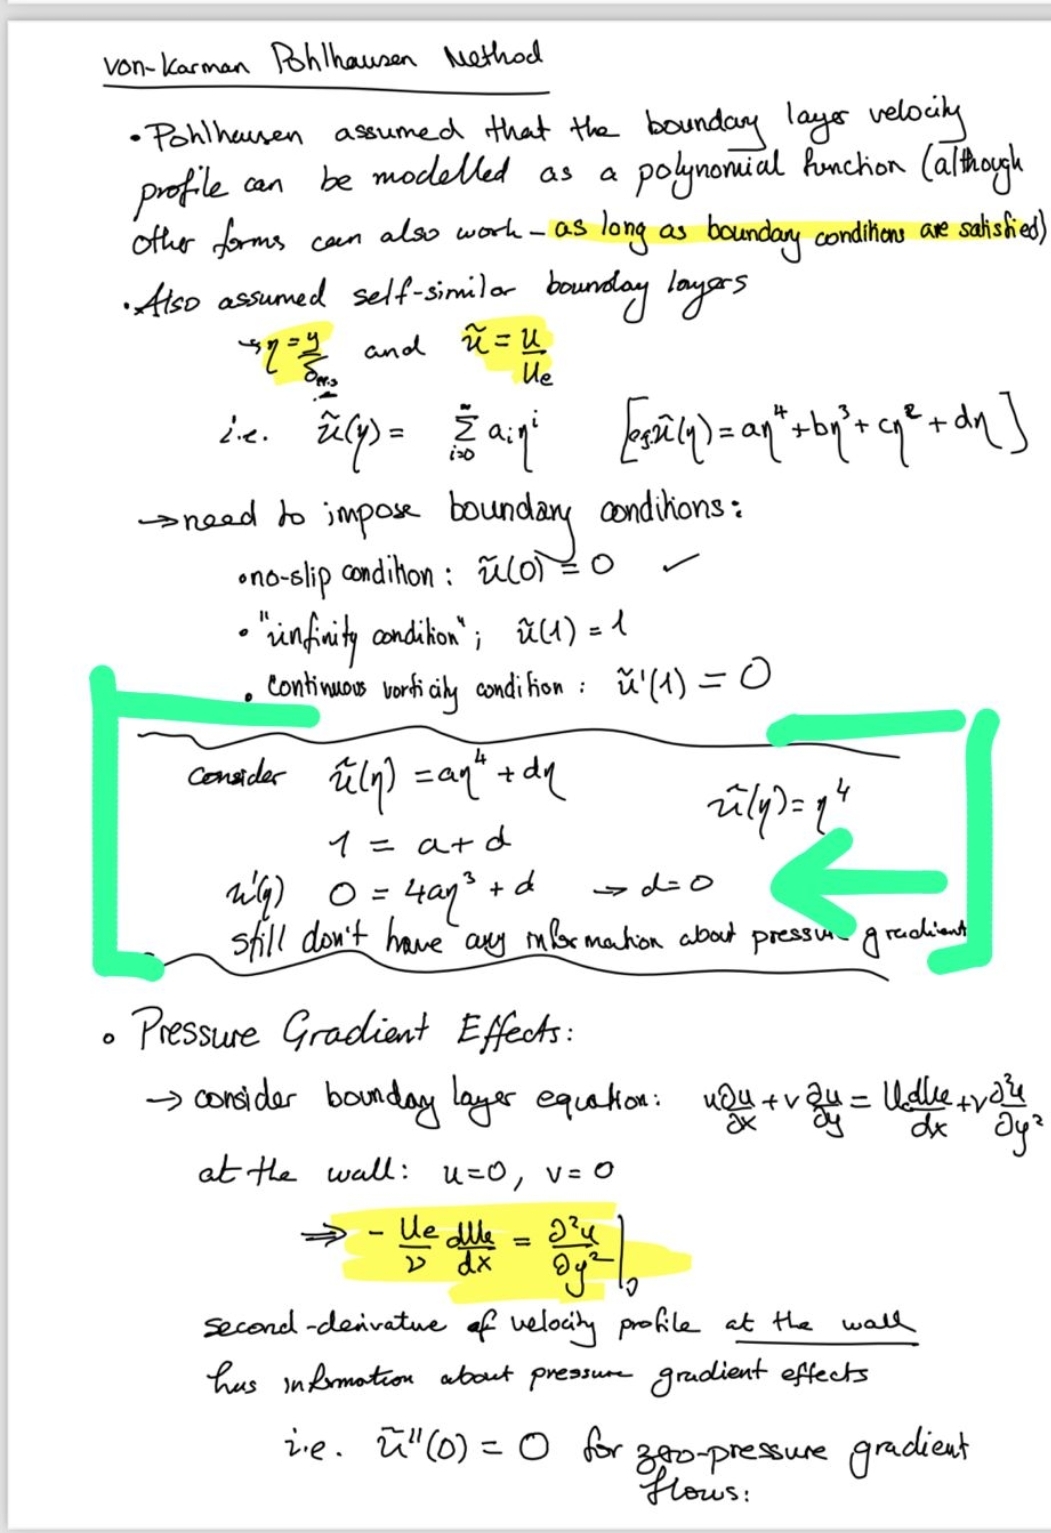 von-Karman Pohlhausen Method
• Pohlhausen assumed that the boundary layer velocity
profile can be modelled as a polynomial function (although
other forms can also work – as long as boundary conditions are satisfied)
• Also assumed self-similar boundary layers
↳ η = y/δ₉₉.₅ and ũ = u/Ue
i.e. ũ(y) = ∞Σi=0 aᵢηⁱ [eg. ũ(η) = aη⁴ + bη³ + cη² + dη]
→ need to impose boundary conditions:
• no-slip condition: ũ(0) = 0 ✓
• "infinity condition"; ũ(1) = 1
• Continuous vorticity condition: ũ'(1) = 0
Consider ũ(η) = aη⁴ + dη ũ(y) = η⁴
1 = a + d
u'(y) 0 = 4aη³ + d → d = 0
still don't have any information about pressure gradient
• Pressure Gradient Effects:
→ consider boundary layer equation: u∂u/∂x + v∂u/∂y = Ue dUe/dx + ν∂²u/∂y²
at the wall: u=0, v=0
⇒ - Ue/ν dUe/dx = ∂²u/∂y²|₀
second-derivative of velocity profile at the wall
has information about pressure gradient effects
i.e. ũ''(0) = 0 for zero-pressure gradient
flows: